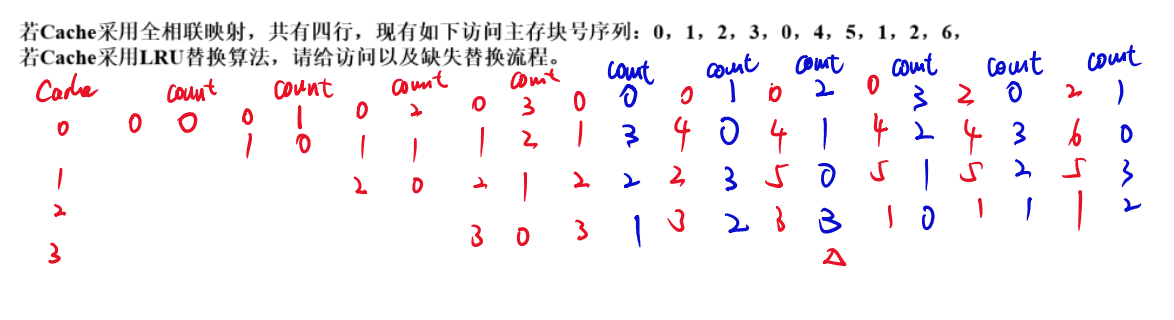 若Cache采用全相联映射，共有四行，现有如下访问主存块号序列：0，1，2，3，0，4，5，1，2，6，
若Cache采用LRU替换算法，请给访问以及缺失替换流程。
Cache count count count count count count count count count count
0 0 0 0 1 0 2 0 3 0 0 0 1 0 2 0 3 2 0 2 1
1 0 1 1 1 2 1 3 4 0 4 1 4 2 4 3 6 0
1 2 0 2 1 2 2 2 3 5 0 5 1 5 2 5 3
2 3 0 3 1 3 2 3 3 1 0 1 1 1 2
3 △